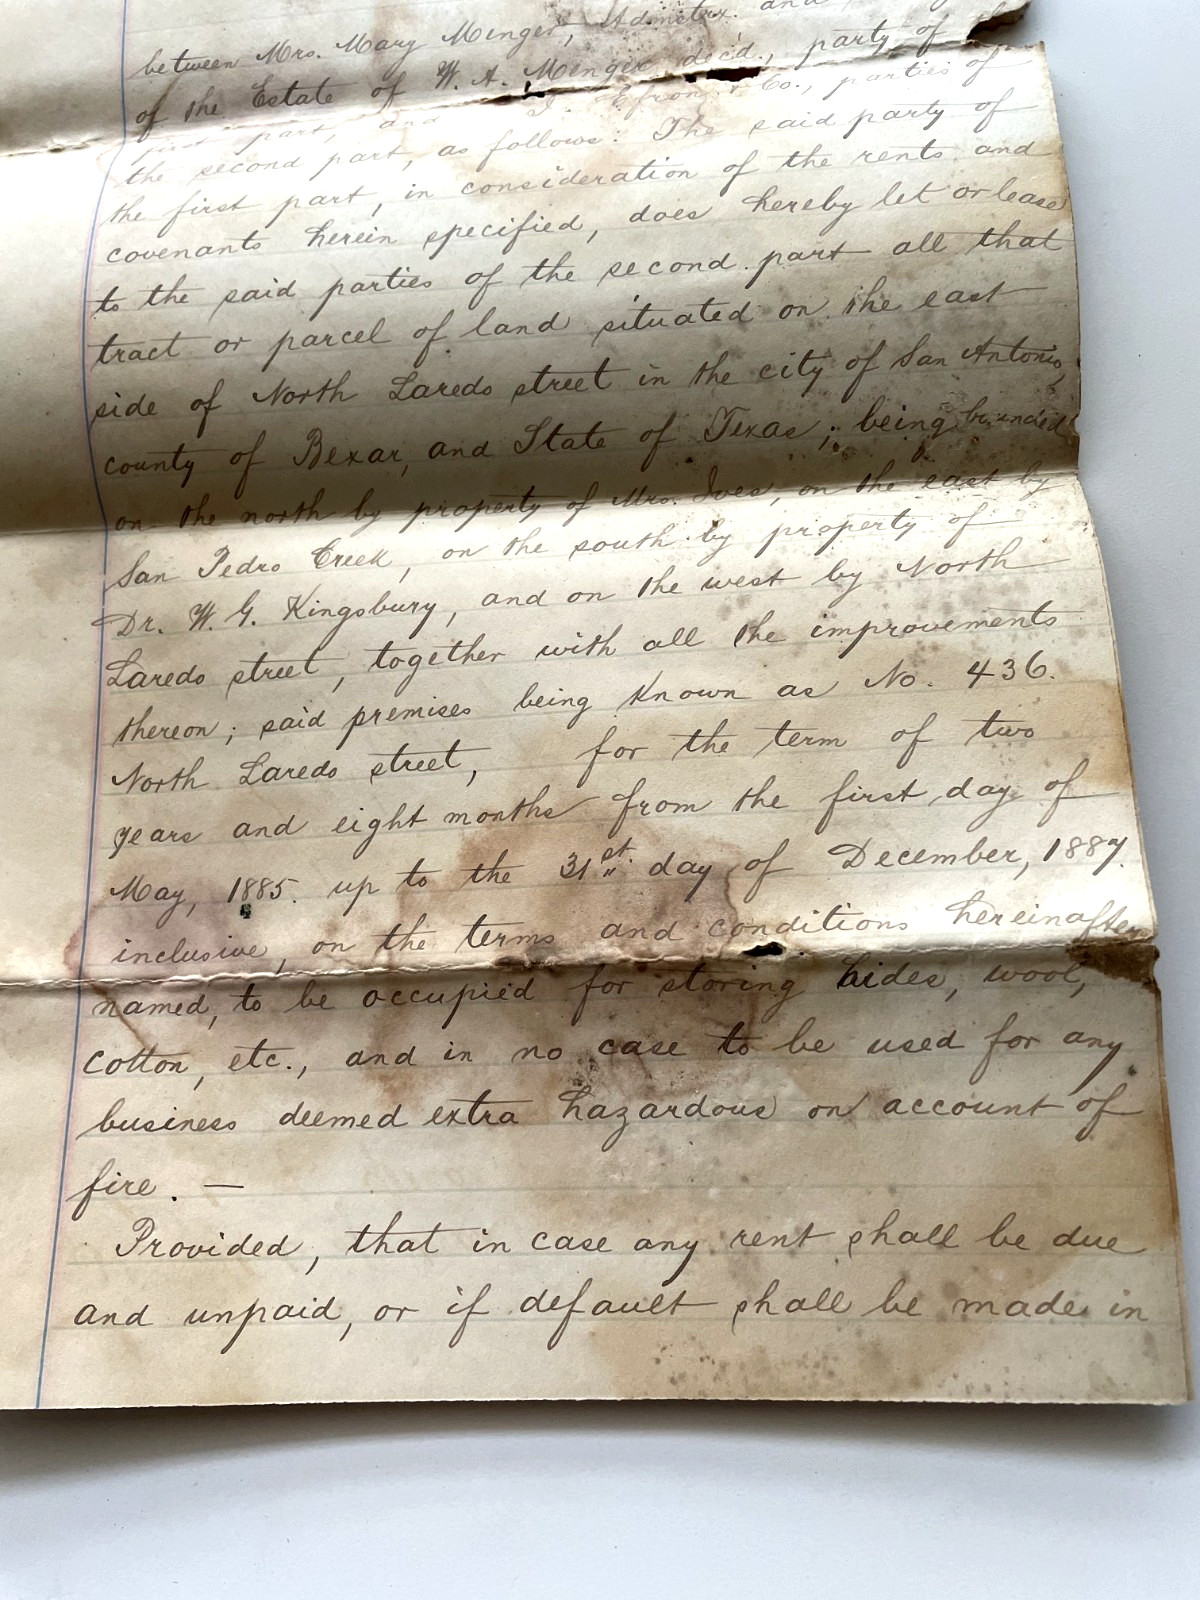 between Mrs. Mary Menger, Admctrx. and
of the Estate of W. A. Menger dec'd., party of the
first part, and Efron & Co., parties of
the second part, as follows: The said party of
the first part, in consideration of the rents and
covenants herein specified, does hereby let or lease
to the said parties of the second part all that
tract or parcel of land situated on the east
side of North Laredo street in the city of San Antonio,
county of Bexar, and State of Texas; being bounded
on the north by property of Mrs. Ives, on the east by
San Pedro Creek, on the south by property of
Dr. W. G. Kingsbury, and on the west by North
Laredo street, together with all the improvements
thereon; said premises being known as No. 436.
North Laredo street, for the term of two
years and eight months from the first day of
May, 1885. up to the 31st. day of December, 1887.
inclusive, on the terms and conditions hereinafter
named, to be occupied for storing hides, wool,
cotton, etc., and in no case to be used for any
business deemed extra hazardous on account of
fire. —
Provided, that in case any rent shall be due
and unpaid, or if default shall be made in